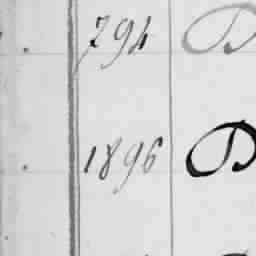 794 B
1896 B